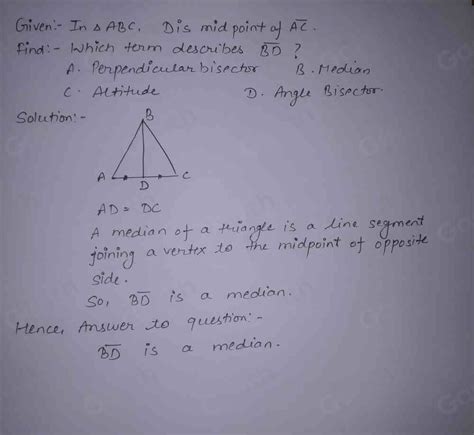 Given:- In △ ABC, D is mid point of AC.
Find:- Which term describes BD ?
A. Perpendicular bisector B. Median
C. Altitude D. Angle Bisector
Solution:-
B
A D C
AD = DC
A median of a triangle is a line segment
joining a vertex to the midpoint of opposite
side.
So, BD is a median.
Hence, Answer to question:-
BD is a median.